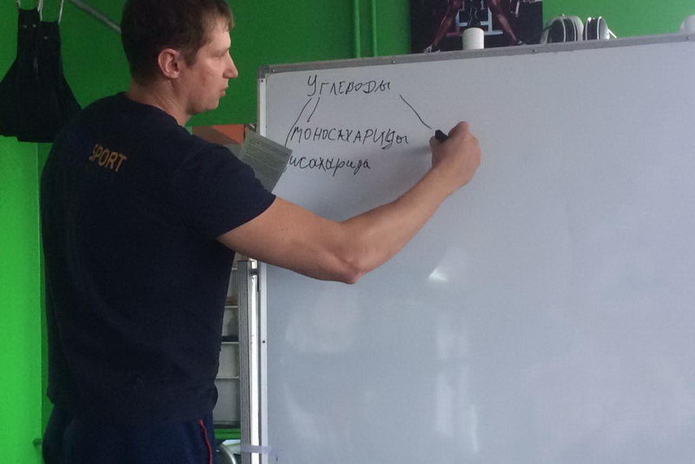 SPORT
Углеводы
МОНОСАХАРИДЫ
исахарида